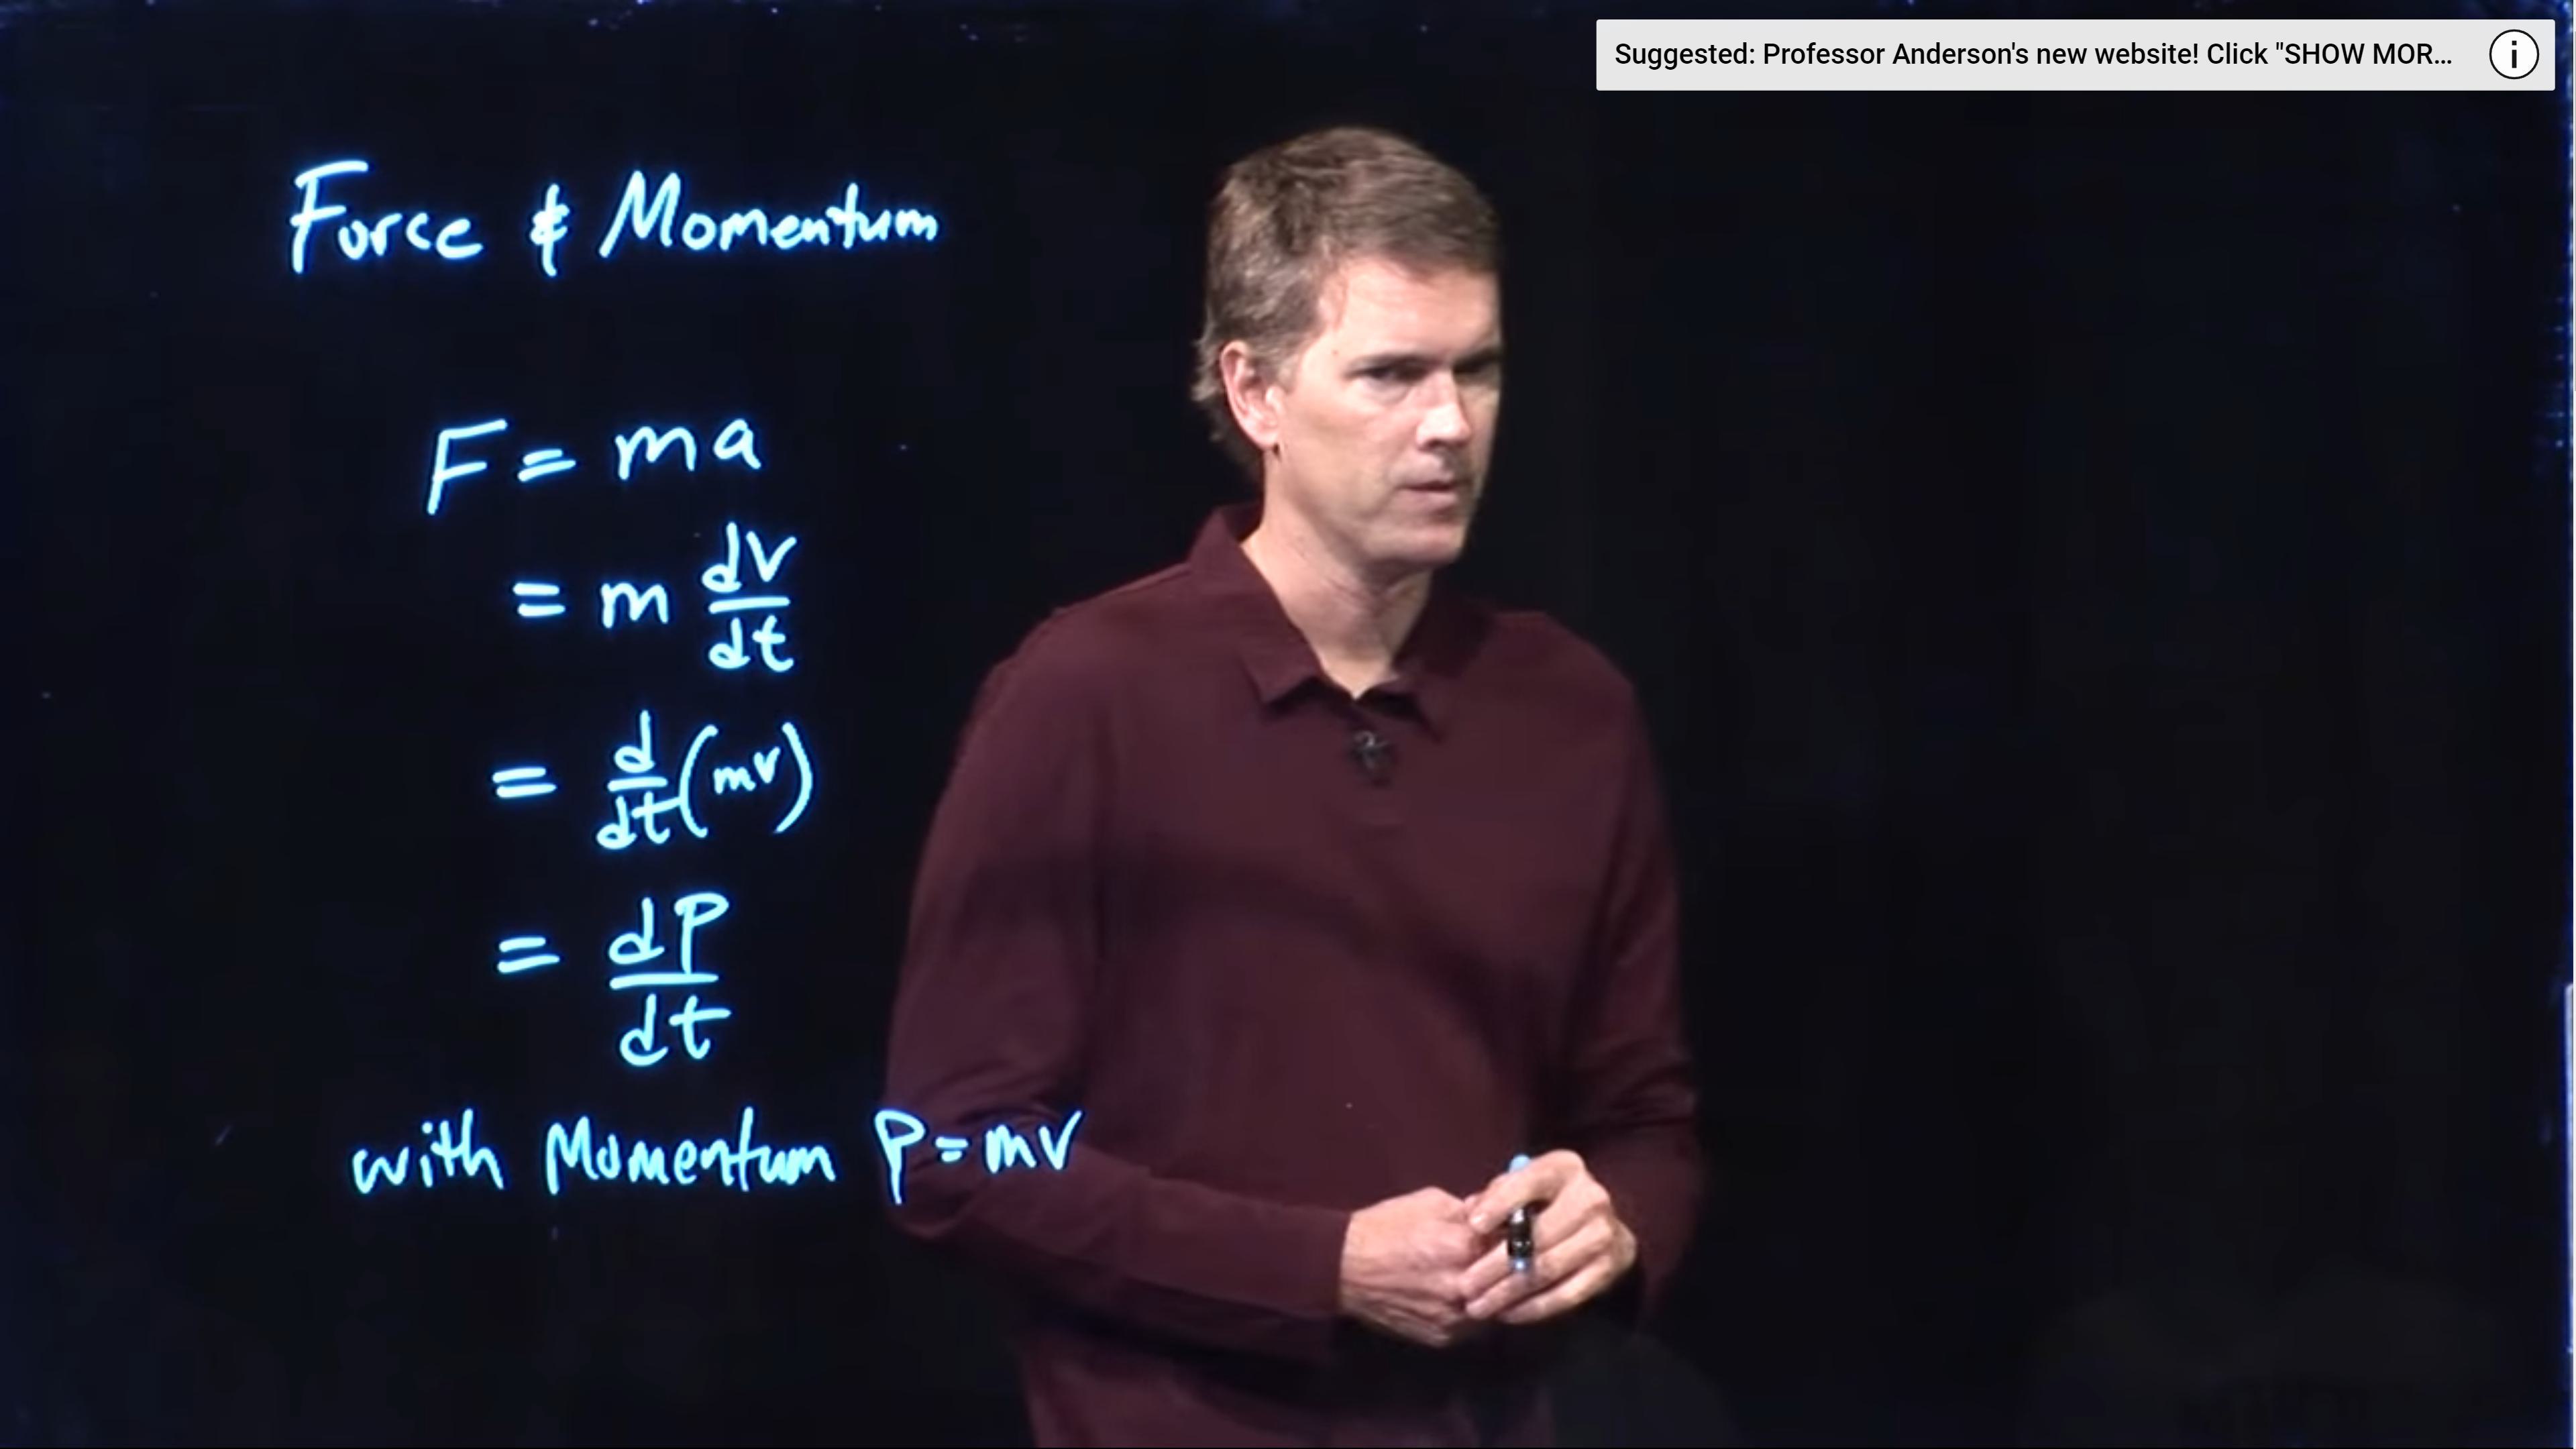 Suggested: Professor Anderson's new website! Click "SHOW MOR...
Force & Momentum
F = ma
= m dv/dt
= d/dt (mv)
= dP/dt
with Momentum P = mv